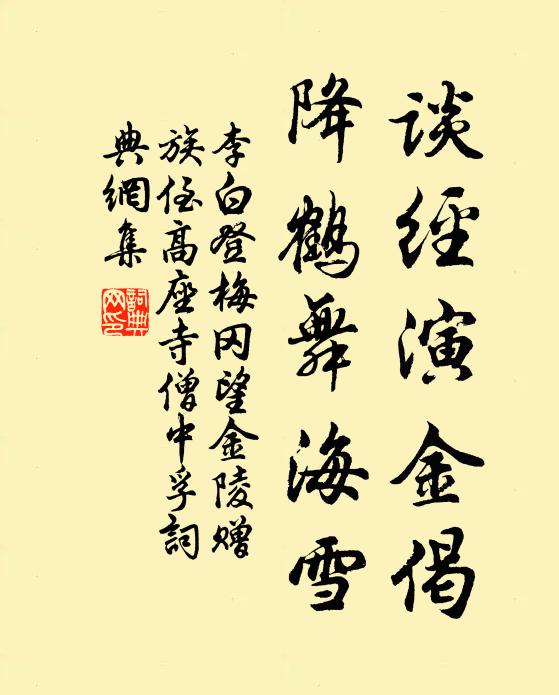 谈經演金偈
降鶴舞海雪
李白登梅冈望金陵赠
族侄高座寺僧中孚詞
典網集
詞典
网印